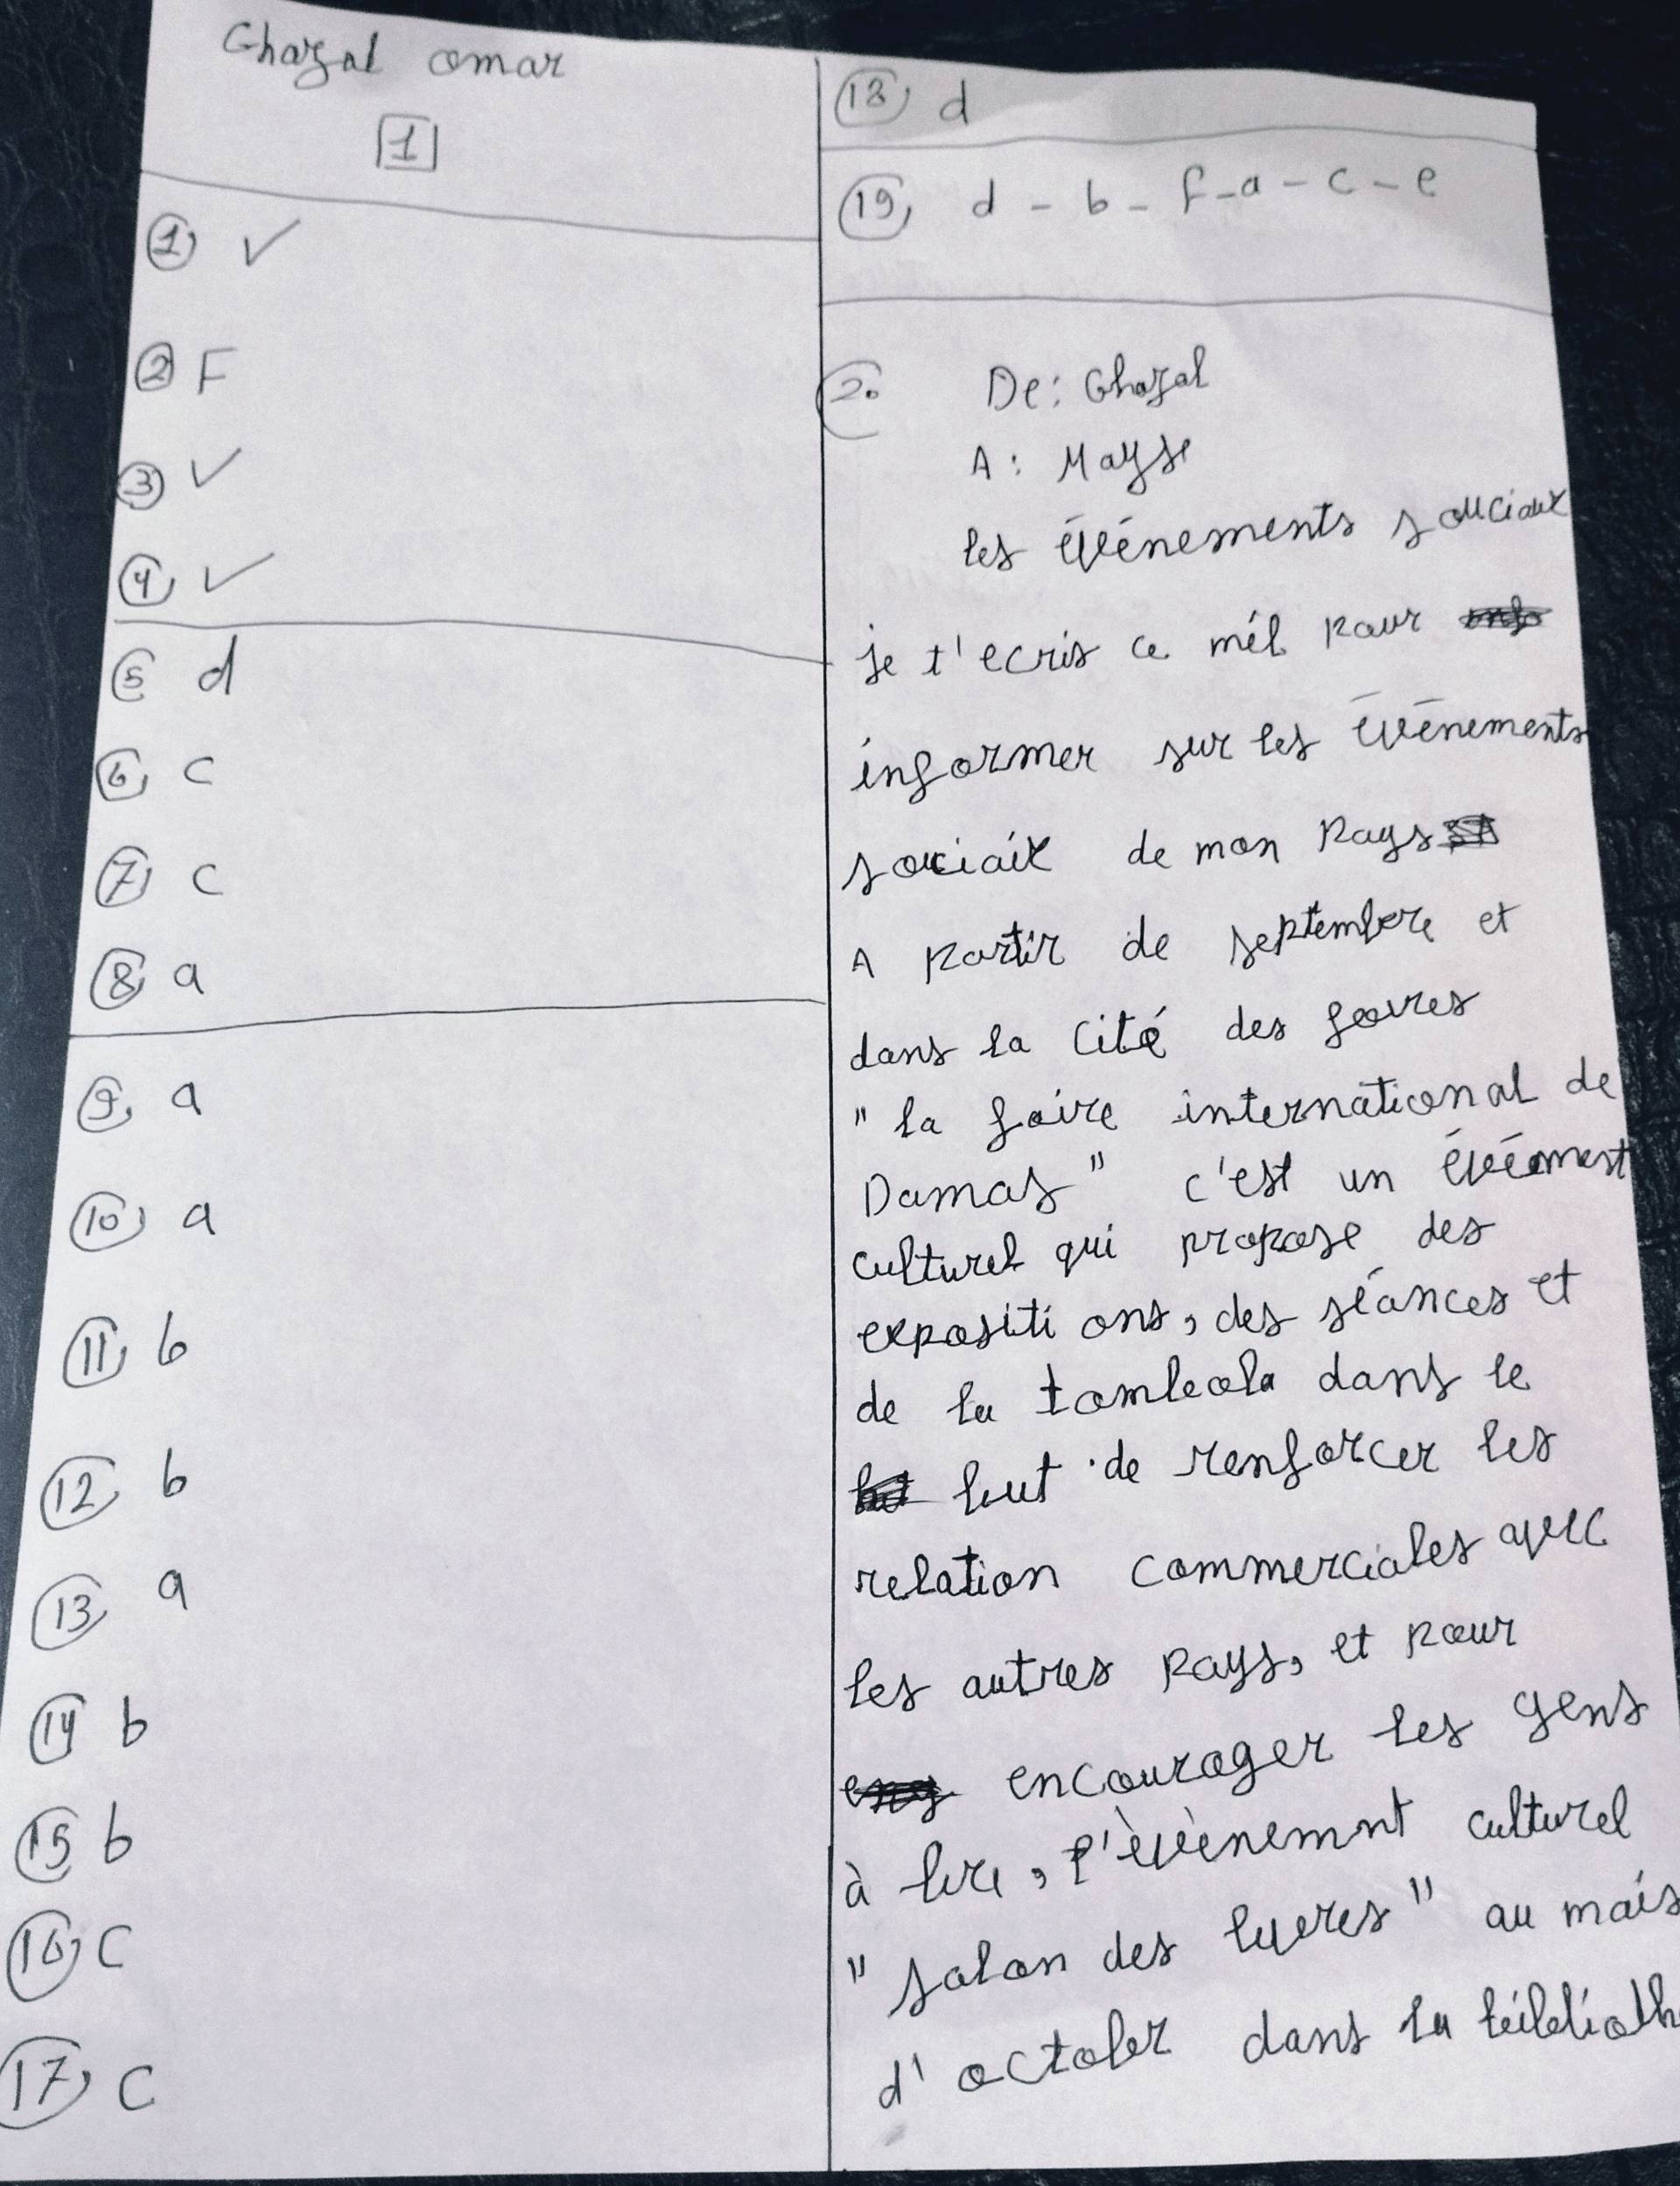 Ghazal omar
1
1 ✓
2 F
3 ✓
4 ✓
5 d
6 c
7 c
8 a
9 a
10 a
11 b
12 b
13 a
14 b
15 b
16 c
17 c
18 d
19 d - b - f - a - c - e
2. De: Ghazal
A: Mayse
les événements souciaux
je t'ecris ce mél pour
informer sur les événements
souciaix de mon Pays
A partir de septembre et
dans la Cité des foires
" la foire international de
Damas" c'est un événment
culturel qui propose des
expositi ons, des séances et
de la tombola dans le
but de renforcer les
relation commerciales avec
les autres Pays, et pour
encourager les gens
à lire, l'évènemnt culturel
" salon des lyvres" au mais
d' october dans la